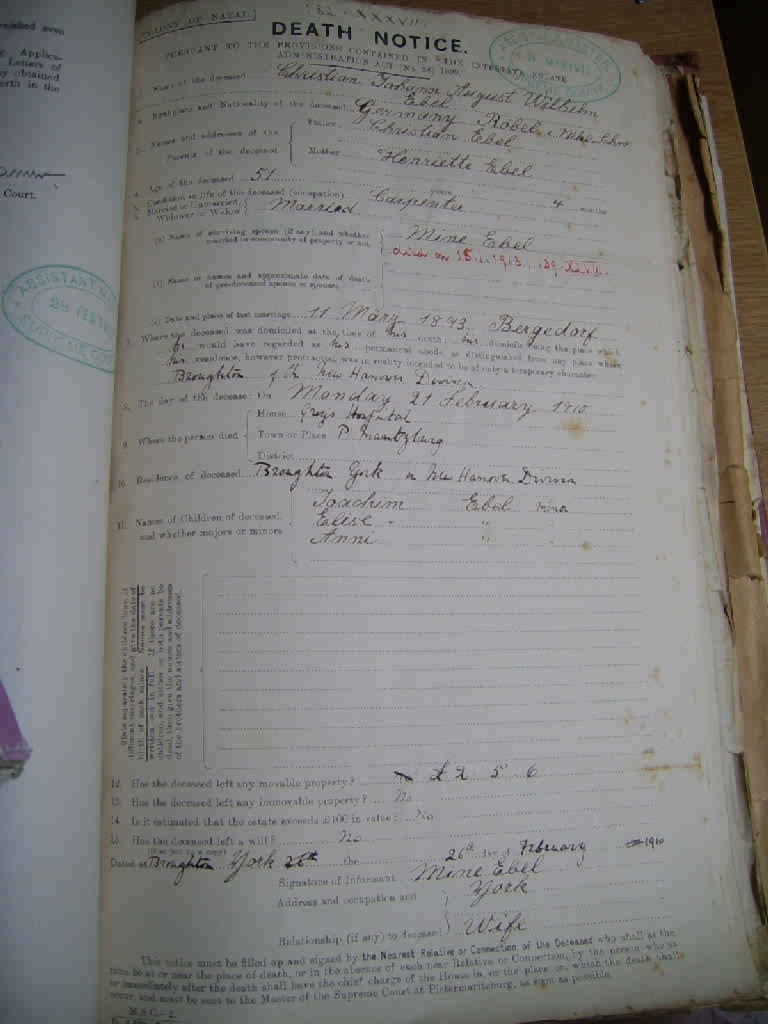 COLONY OF NATAL.
DEATH NOTICE.
PURSUANT TO THE PROVISIONS CONTAINED IN THE INTESTATE ESTATE
ADMINISTRATION ACT
Name of the deceased Christian Johann August Wilhelm
Ebel
Birthplace and Nationality of the deceased Germany Röbel
Names and addresses of the Parents of the deceased
Father Christian Ebel
Mother Henriette Ebel
4. Age of the deceased 51 years 4 months
5. Condition in life of the deceased (occupation) Carpenter
6. Married or Unmarried, Widower or Widow Married
(a) Name of surviving spouse (if any) and whether married in community of property or not Mine Ebel
died on 15 1913
(b) Name or names and approximate date of death of pre-deceased spouse or spouses
(c) Date and place of last marriage 11 März 1893 Bergedorf
7. Where the deceased was domiciled at the time of his death, his domicile being the place which
he would have regarded as his permanent abode as distinguished from any place where
his residence, however protracted, was in reality intended to be of only a temporary character
Broughton of the New Hanover Division
8. The day of the decease: On Monday 21 February 1910
9. Where the person died
House Greys Hospital
Town or Place P. Maritzburg
District
10. Residence of deceased Broughton York in New Hanover Division
11. Names of Children of deceased, and whether majors or minors
Joachim Ebel minor
Elise " "
Anni "
State separately the children born of
different marriages, and give the date of
birth of each minor. Names must be
written out in full. If there are no
children, and either or both parents be
dead, then give the names and addresses
of the brothers and sisters of deceased.
12. Has the deceased left any movable property? £2 5 6
13. Has the deceased left any immovable property? No
14. Is it estimated that the estate exceeds £100 in value? No
15. Has the deceased left a will? No
Dated at Broughton York 26th the 26th day of February 1910
Signature of Informant Mine Ebel
Address and occupation York
Relationship (if any) to deceased Wife
This notice must be filled up and signed by the Nearest Relative or Connection of the Deceased who shall at the
time be at or near the place of death, or in the absence of such near Relative or Connection, by the person who at
or immediately after the death shall have the chief charge of the House in, or the place on, which the death shall
occur, and must be sent to the Master of the Supreme Court at Pietermaritzburg, as soon as possible.
M.S.C.-2.
Court.
ASSISTANT